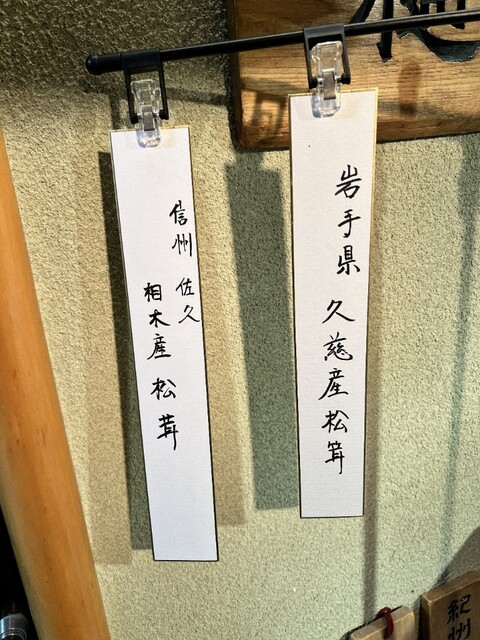 岩手県 久慈産松茸
信州 佐久
相木産 松茸
紀州